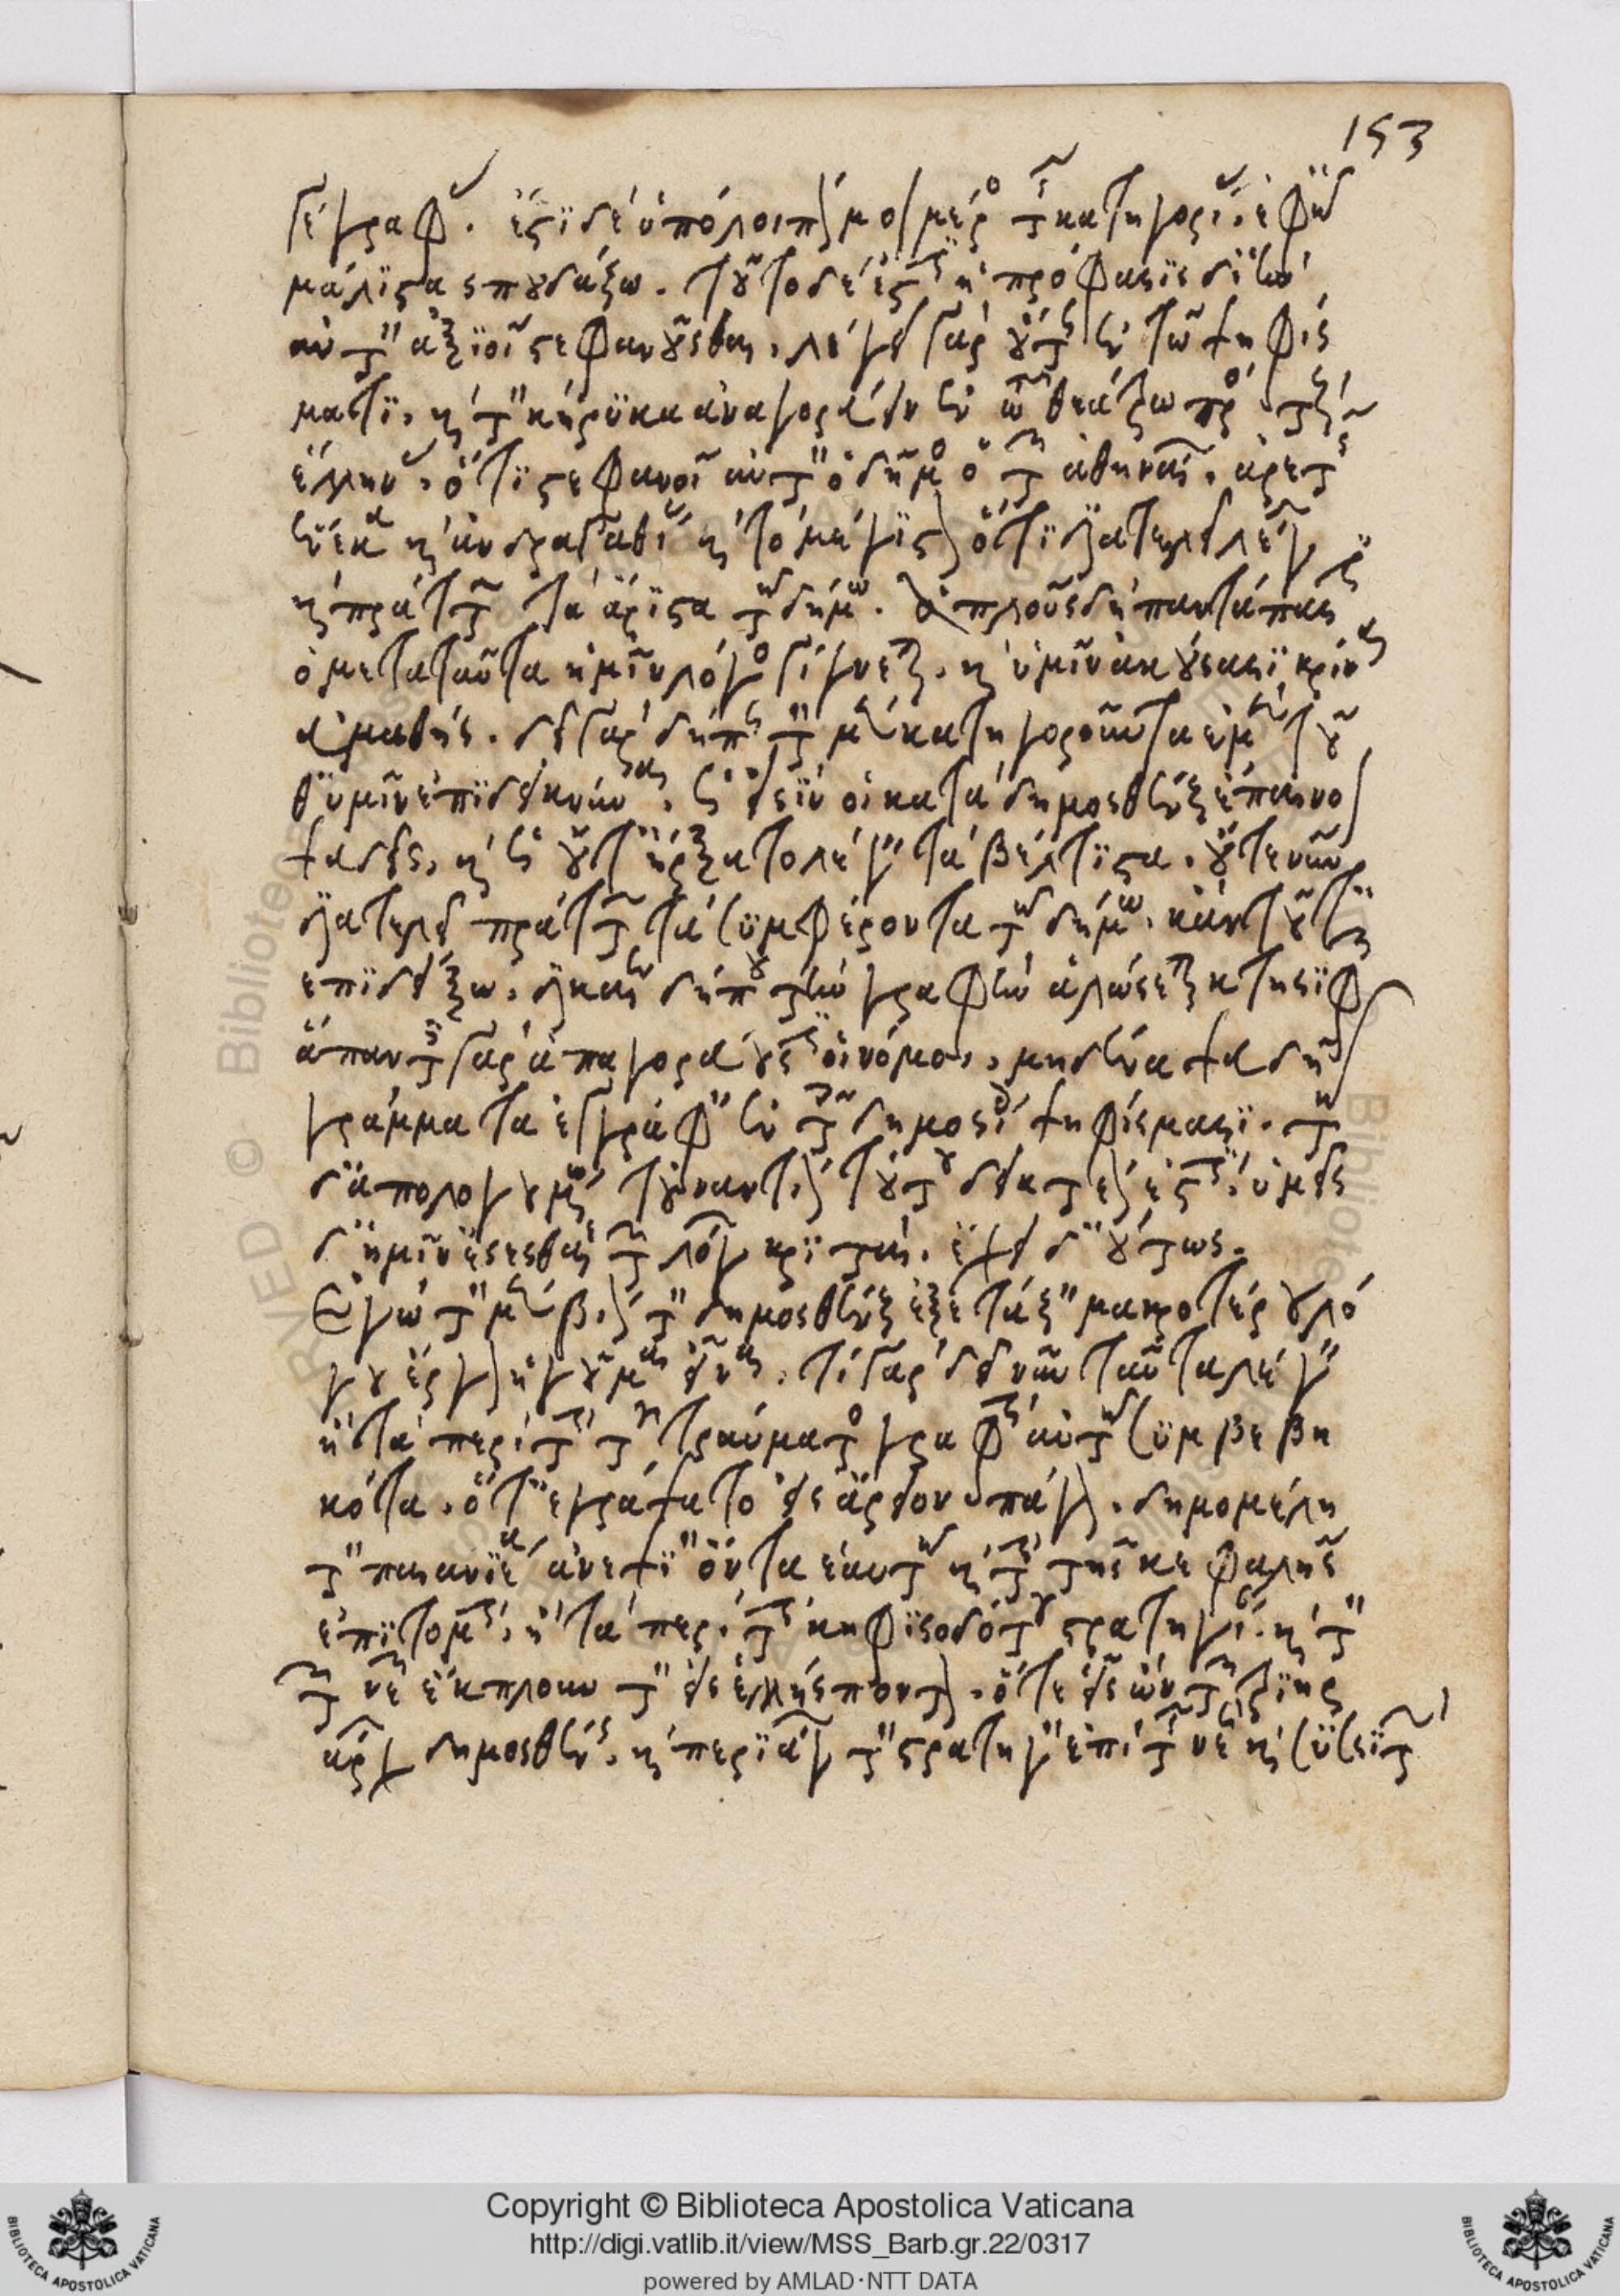 153
γέγραφεν. ἔστι δὲ ὑπόλοιπόν μοι μέρος τῆς κατηγορίας, ἐφ' ᾧ
μάλιστα σπουδάζω. τοῦτο δέ ἐστιν ἡ πρόφασις δι' ἣν
αὐτὸν ἀξιοῖ στεφανοῦσθαι. λέγει γὰρ οὕτως ἐν τῶ ψηφίσ
ματι, καὶ τὸν κήρυκα ἀναγορεύειν ἐν τῶ θεάτρω πρὸς τοὺς
ἕλληνας, ὅτι στεφανοῖ αὐτὸν ὁ δῆμος ὁ τῶν ἀθηναίων, ἀρετῆς
ἕνεκα καὶ ἀνδραγαθίας καὶ τὸ μέγιστον ὅτι διατελεῖ λέγων
καὶ πράττων τὰ ἄριστα τῶ δήμω. ἁπλοῦς δὴ παντάπασι
ὁ μετὰ ταῦτα ἡμῖν λόγος γίγνεται, καὶ ὑμῖν ἀκούσασι κρῖναι
εὐμαθής. δεῖ γὰρ δήπου τὸν μὲν κατηγοροῦντα ἐμὲ τοῦ
θ' ὑμῖν ἐπιδεικνύναι, ὡς εἰσὶν οἱ κατὰ δημοσθένους ἔπαινοι
ψευδεῖς, καὶ ὡς οὔτ' ἤρξατο λέγειν τὰ βέλτιστα, οὔτε νῦν
διατελεῖ πράττων τὰ συμφέροντα τῶ δήμω. κἂν τοῦτ'
ἐπιδείξω, δικαίως δήπου τὴν γραφὴν ἁλώσεται κτησιφῶν
ἅπαντες γὰρ ἀπαγορεύουσιν οἱ νόμοι, μηδένα ψευδῆ
γράμματα ἐγγράφειν ἐν τοῖς δημοσίοις ψηφίσμασι. τῶ
δ' ἀπολογουμένω τοὐναντίον τούτου δεικτέον ἐστίν. ὑμεῖς
δ' ἡμῖν ἔσεσθε τῶν λόγων κριταί. ἔχει δ' οὕτως.
Ἐγὼ τὸν μὲν βίον τὸν δημοσθένους ἐξετάζειν μακροτέρου λό
γου ἔργον ἡγοῦμαι εἶναι. τί γὰρ δεῖ νῦν ταῦτα λέγειν
ἢ τὰ περὶ τὴν τοῦ τραύματος γραφὴν αὐτῶ συμβεβη
κότα, ὅτ' ἐγράψατο εἰς ἄρειον πάγον, δημομέλη
τὸν παιανιέα ἀνεψιὸν ὄντα ἑαυτῶ καὶ τὴν τῆς κεφαλῆς
ἐπιτομὴν, ἢ τὰ περὶ τὴν κηφισοδότου στρατηγίαν καὶ τὸν
τῶν νεῶν ἔκπλουν τὸν εἰς ἑλλήσποντον, ὅτε εἷς ὢν τῶν τριηρ
άρχων δημοσθένης, καὶ περιάγων τὸν στρατηγὸν ἐπὶ τῆς νεὼς καὶ συσσιτῶν
Copyright © Biblioteca Apostolica Vaticana
http://digi.vatlib.it/view/MSS_Barb.gr.22/0317
powered by AMLAD·NTT DATA